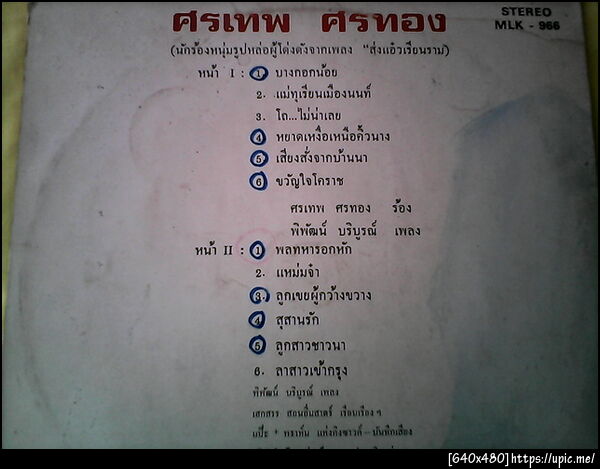 ศรเทพ ศรทอง
STEREO
MLK - 966
(นักร้องหนุ่มรูปหล่อผู้โด่งดังจากเพลง "ส่งแอ๋วเรียนราม)
หน้า I : 1 บางกอกน้อย
2. แม่ทุเรียนเมืองนนท์
3. โถ...ไม่น่าเลย
4 หยาดเหงื่อเหนือคิ้วนาง
5 เสียงสั่งจากบ้านนา
6 ขวัญใจโคราช
ศรเทพ ศรทอง ร้อง
พิพัฒน์ บริบูรณ์ เพลง
หน้า II : 1 พลทหารอกหัก
2. แหม่มจ๋า
3. ลูกเขยผู้กว้างขวาง
4 สุสานรัก
5 ลูกสาวชาวนา
6. ลาสาวเข้ากรุง
พิพัฒน์ บริบูรณ์ เพลง
เสกสรร สอนอิ่มสาตร์ เรียบเรียง ๆ
แป๊ะ + พราหิ่ม แห่งกิงซาวด์ - บันทึกเสียง
[640x480]https://upic.me/